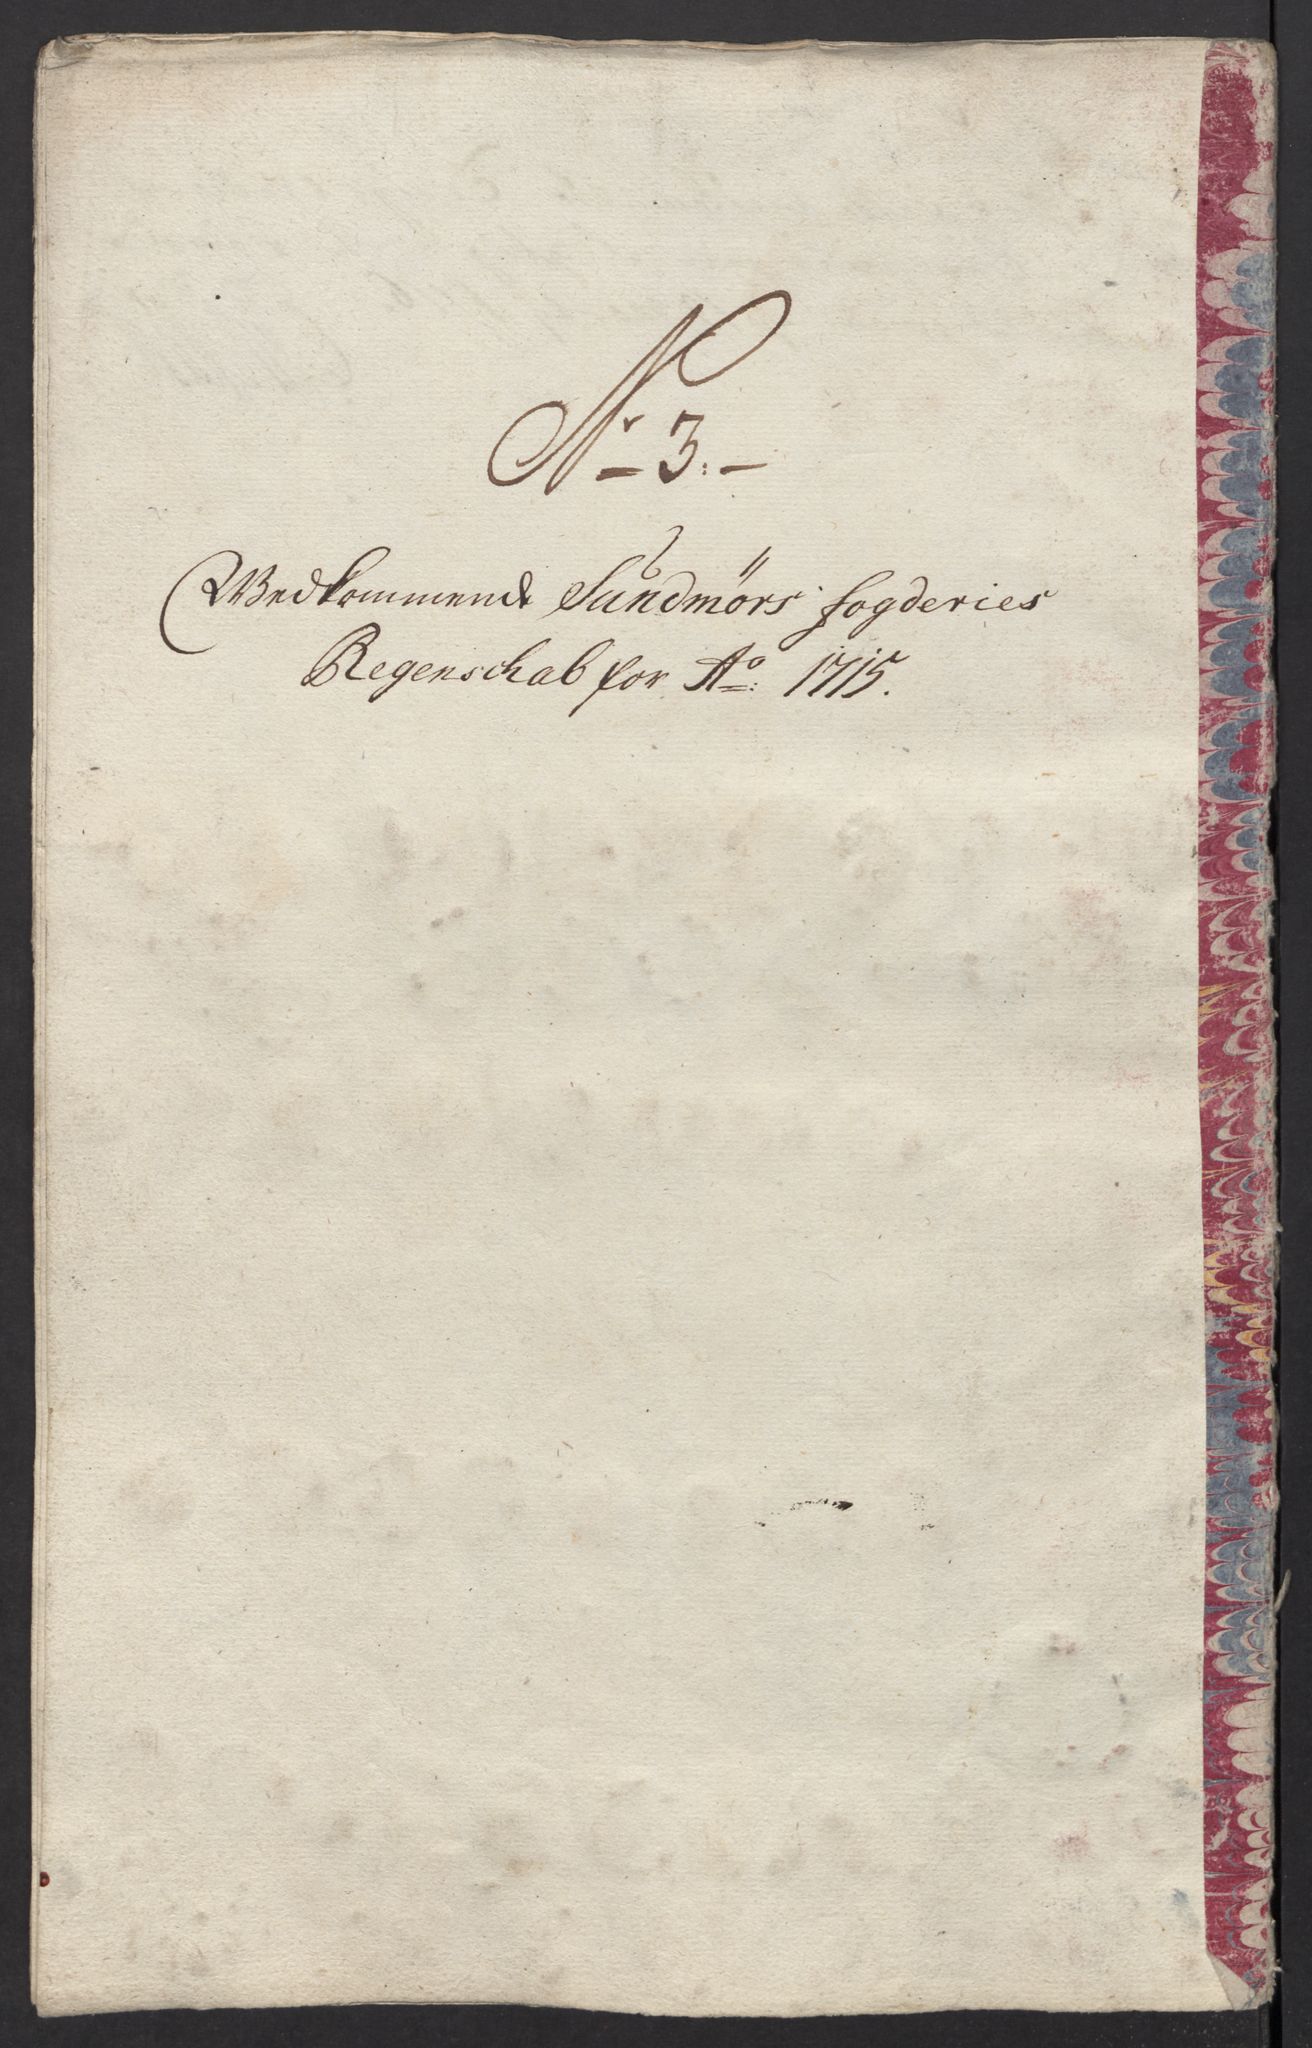 Nr 3.
Wedkommende Sundmörs fogderies
Regenschab for Ao: 1715.